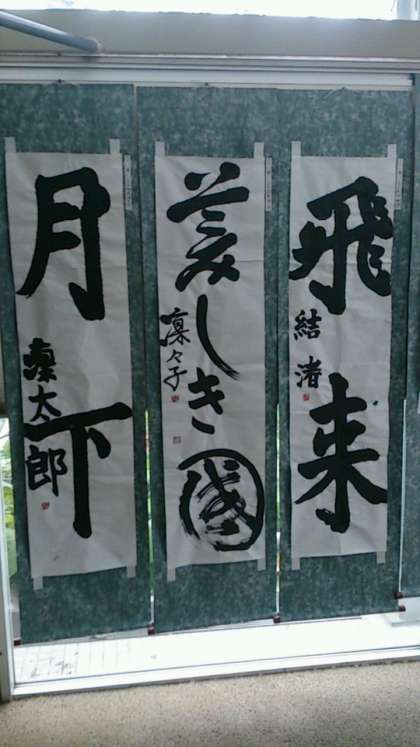 飛来
結渚
美しき國
凛々子
月下
凛太郎